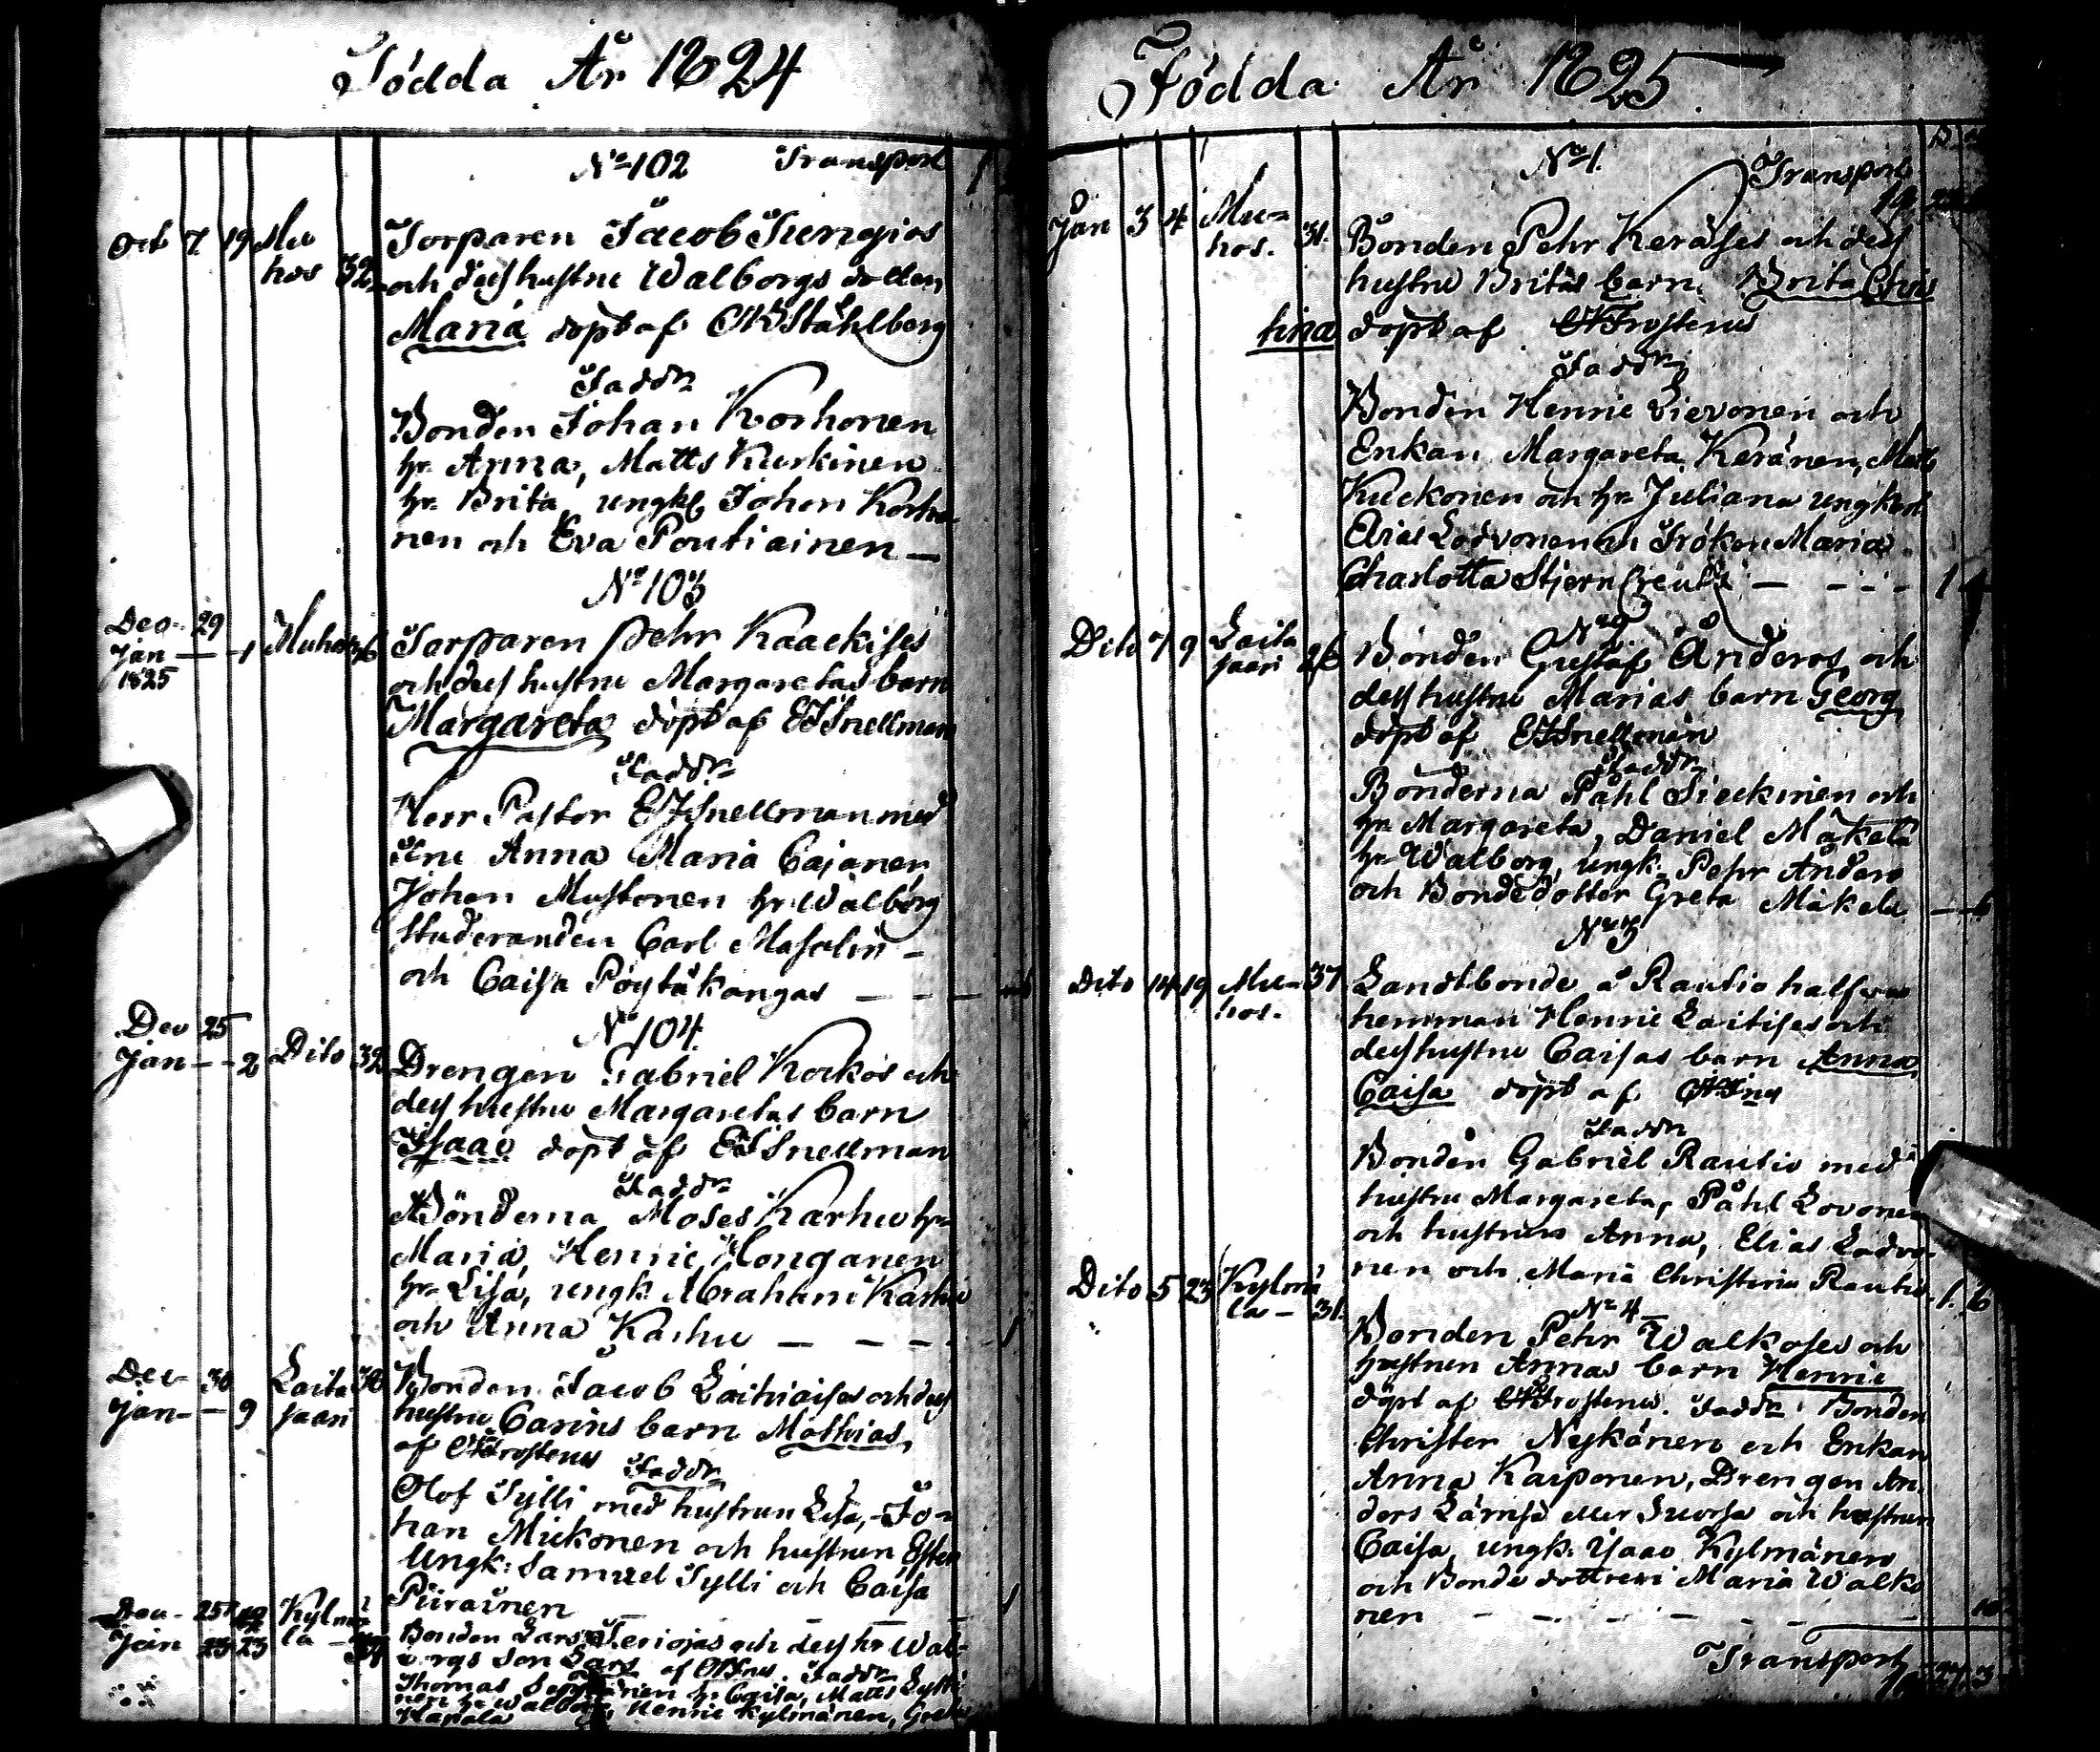 Födda År 1824
No 102 Transport
Oct 7 19 Mu
hos 32
Torparen Jacob
och dess hustru Walborgs dotter
Maria döpt af Ståhlberg
Faddr
Bonden Johan Korhonen
hr Anna, Matts Kurkinen
hr Brita, ungk Johan Korho-
nen och Eva Poutiainen —
No 103
Dec 29
Jan — 1
1825
Muhos 36
Torparen Pehr Kaackises
och dess hustru Margaretas barn
Margareta döpt af EJSnellman
Faddr
Herr Pastor EJSnellman med
Fru Anna Maria Cajanen
Johan Mustonen hr Walborg
Studeranden Carl Masalin —
och Caisa Pöytäkangas —
No 104
Dec 25
Jan — 2 Dito 32
Drengen Gabriel Kockos och
dess hustru Margaretas barn
Isaac döpt af EJSnellman
Faddr
Bönderna Moses Karhu hr
Maria, Henric Honganen
hr Lisa, ungk Abraham Karhu
och Anna Karhu —
Dec 30
Jan — 9
Laita
saari
30
Bonden Jacob Laitiaises och dess
hustru Carins barn Mathias,
af Frosterus Faddr
Olof Sylli med hustrun Lisa, Jo-
han Mickonen och hustrun Ester
Ungk: Samuel Sylli och Caisa
Piirainen
Jan 23 Kylmä
la —
Bonden Lars och dess hr Wal-
borgs son Lars af Faddr
Thomas hr Caisa, Matts
nen hr Walborg, Henric Kylmänen, Greta
Födda År 1825
No 1.
Transport
Jan 3 4 Mu-
hos. 31.
Bonden Pehr Keräses och dess
hustru Britas barn Brita Chris
tina döpt af Frosterus
Faddr
Bonden Henric Sievonen och
Enkan Margareta Keränen, Matts
Kuckonen och hr Juliana ungkarl
Elias Lodvonen och Fröken Maria
Charlotta StjernCreutz —
No 2.
Dito 7 9 Laita
saari 26
Bonden Gustaf Anderos och
dess hustru Marias barn Georg
döpt af EJSnellman
Faddr
Bönderna Påhl Sieckinen och
hr Margareta, Daniel Mäkelä
hr Walborg, ungk. Pehr Andero
och Bondedotter Greta Mäkelä
No 3
Dito 14 19 Mu-
hos. 37
Landbonde å Rautio halfva
hemman Henric Laitises och
dess hustru Caisas barn Anna
Caisa döpt af
Faddr
Bonden Gabriel Rautio med
hustru Margareta, Påhl Lovonen
och hustrun Anna, Elias Lodvo-
nen och Maria Christina Rautio 1. 6
No 4
Dito 5 23 Kylmä
la — 31.
Bonden Pehr Walkoses och
hustrun Annas barn Henric
döpt af Frosterus. Faddr Bonden
Christer Nykänen och Enkan
Anna Karponen, Drengen An-
ders Lämsä eller Suorsa och hustrun
Caisa, ungk. Isaac Kylmänen
och Bonde dottren Maria Walko
nen —
Transport